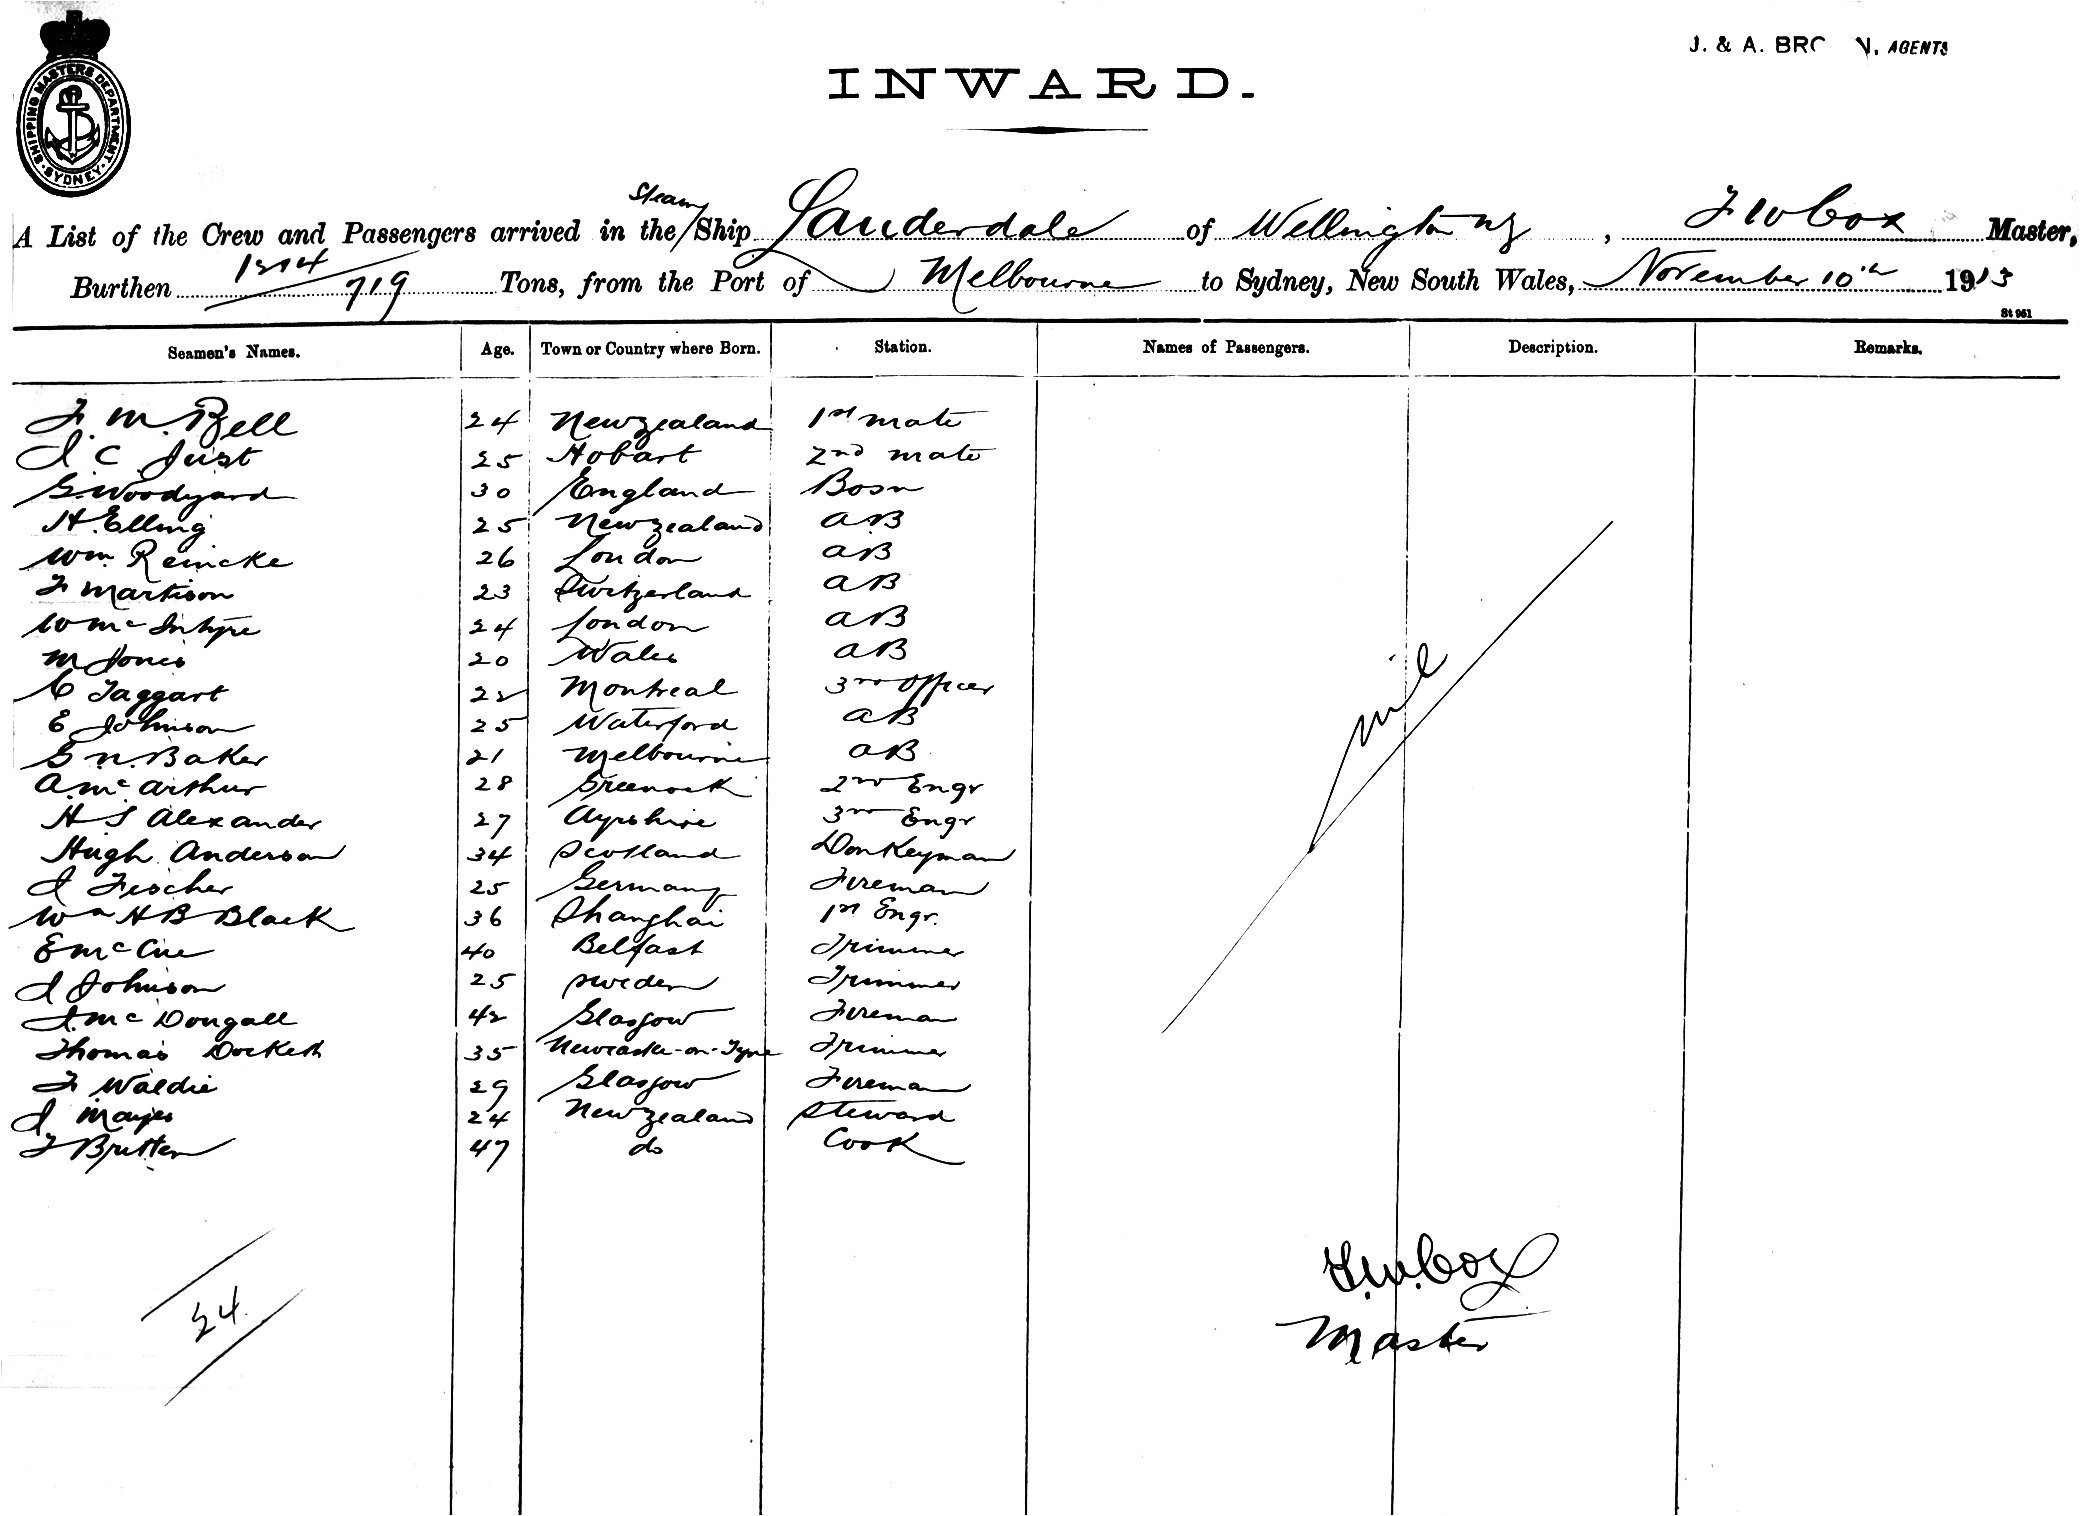 SHIPPING MASTERS DEPARTMENT SYDNEY
J. & A. BRO N, AGENTS
INWARD.
A List of the Crew and Passengers arrived in the Steam Ship Lauderdale of Wellington NZ, F W Cox Master,
Burthen 1374 / 719 Tons, from the Port of Melbourne to Sydney, New South Wales, November 10th 1913
St 951
Seamen's Names. Age. Town or Country where Born. Station. Names of Passengers. Description. Remarks.
F. M. Bell 24 New Zealand 1st mate
J C Just 25 Hobart 2nd mate
G. Woodyard 30 England Bosn
H. Elling 25 New Zealand AB
Wm. Reincke 26 London AB
F Martison 23 Switzerland AB
W Mc Intyre 24 London AB
M Jones 20 Wales AB
C Taggart 22 Montreal 3rd Officer
E Johnson 25 Waterford AB
G. N. Baker 21 Melbourne AB
A. Mc Arthur 28 Greenock 2nd Engr
H S Alexander 27 Ayrshire 3rd Engr
Hugh Anderson 34 Scotland Donkeyman
J Fischer 25 Germany Fireman
Wm H B Black 36 Shanghai 1st Engr.
E Mc Cue 40 Belfast Trimmer
J Johnson 25 Sweden Trimmer
J. Mc Dougall 42 Glasgow Fireman
Thomas 35 Newcastle-on-Tyne Trimmer
F. Waldie 29 Glasgow Fireman
J Mayes 24 New Zealand Steward
F Britten 47 do Cook
nil
24.
F. W. Cox
Master